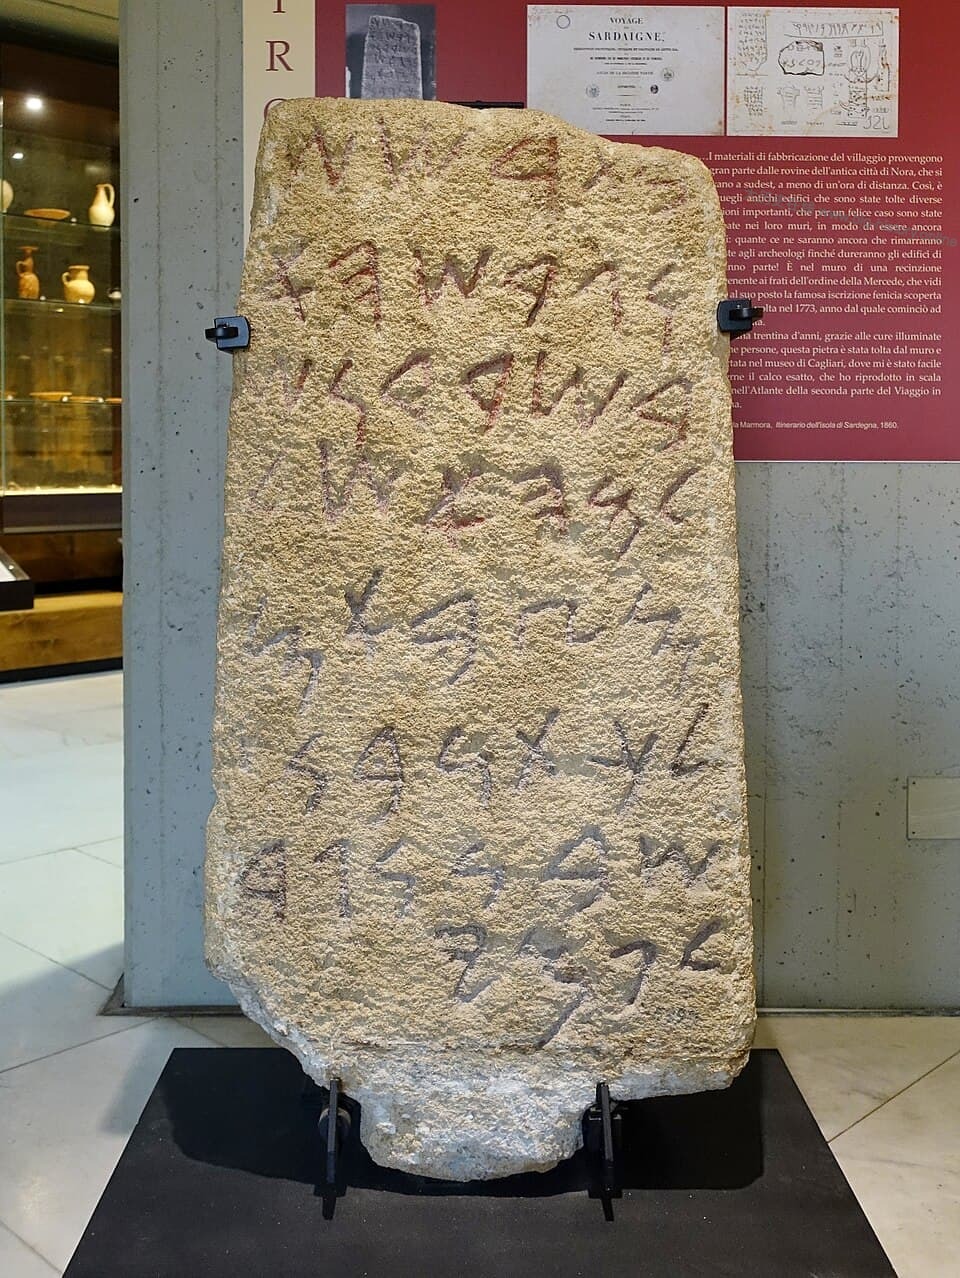 𐤁𐤕𐤓𐤔𐤔
𐤅𐤂𐤓𐤔𐤄𐤀
𐤁𐤔𐤓𐤃𐤍𐤔
𐤋𐤌𐤄𐤀𐤔𐤋
𐤌𐤑𐤁𐤀𐤌
𐤋𐤊𐤕𐤍𐤁𐤍
𐤔𐤁𐤍𐤍𐤂𐤃
𐤋𐤐𐤌𐤉
VOYAGE
SARDAIGNE,
...I materiali di fabbricazione del villaggio provengono
gran parte dalle rovine dell'antica città di Nora, che si
a sudest, a meno di un'ora di distanza. Così, è
antichi edifici che sono state tolte diverse
importanti, che per un felice caso sono state
nei loro muri, in modo da essere ancora
quante ce ne saranno ancora che rimarranno
agli archeologi finché dureranno gli edifici di
parte! È nel muro di una recinzione
ai frati dell'ordine della Mercede, che vidi
al suo posto la famosa iscrizione fenicia scoperta
nel 1773, anno dal quale cominciò ad
trentina d'anni, grazie alle cure illuminate
persone, questa pietra è stata tolta dal muro e
nel museo di Cagliari, dove mi è stato facile
il calco esatto, che ho riprodotto in scala
nell'Atlante della seconda parte del Viaggio in
Marmora, Itinerario dell'isola di Sardegna, 1860.